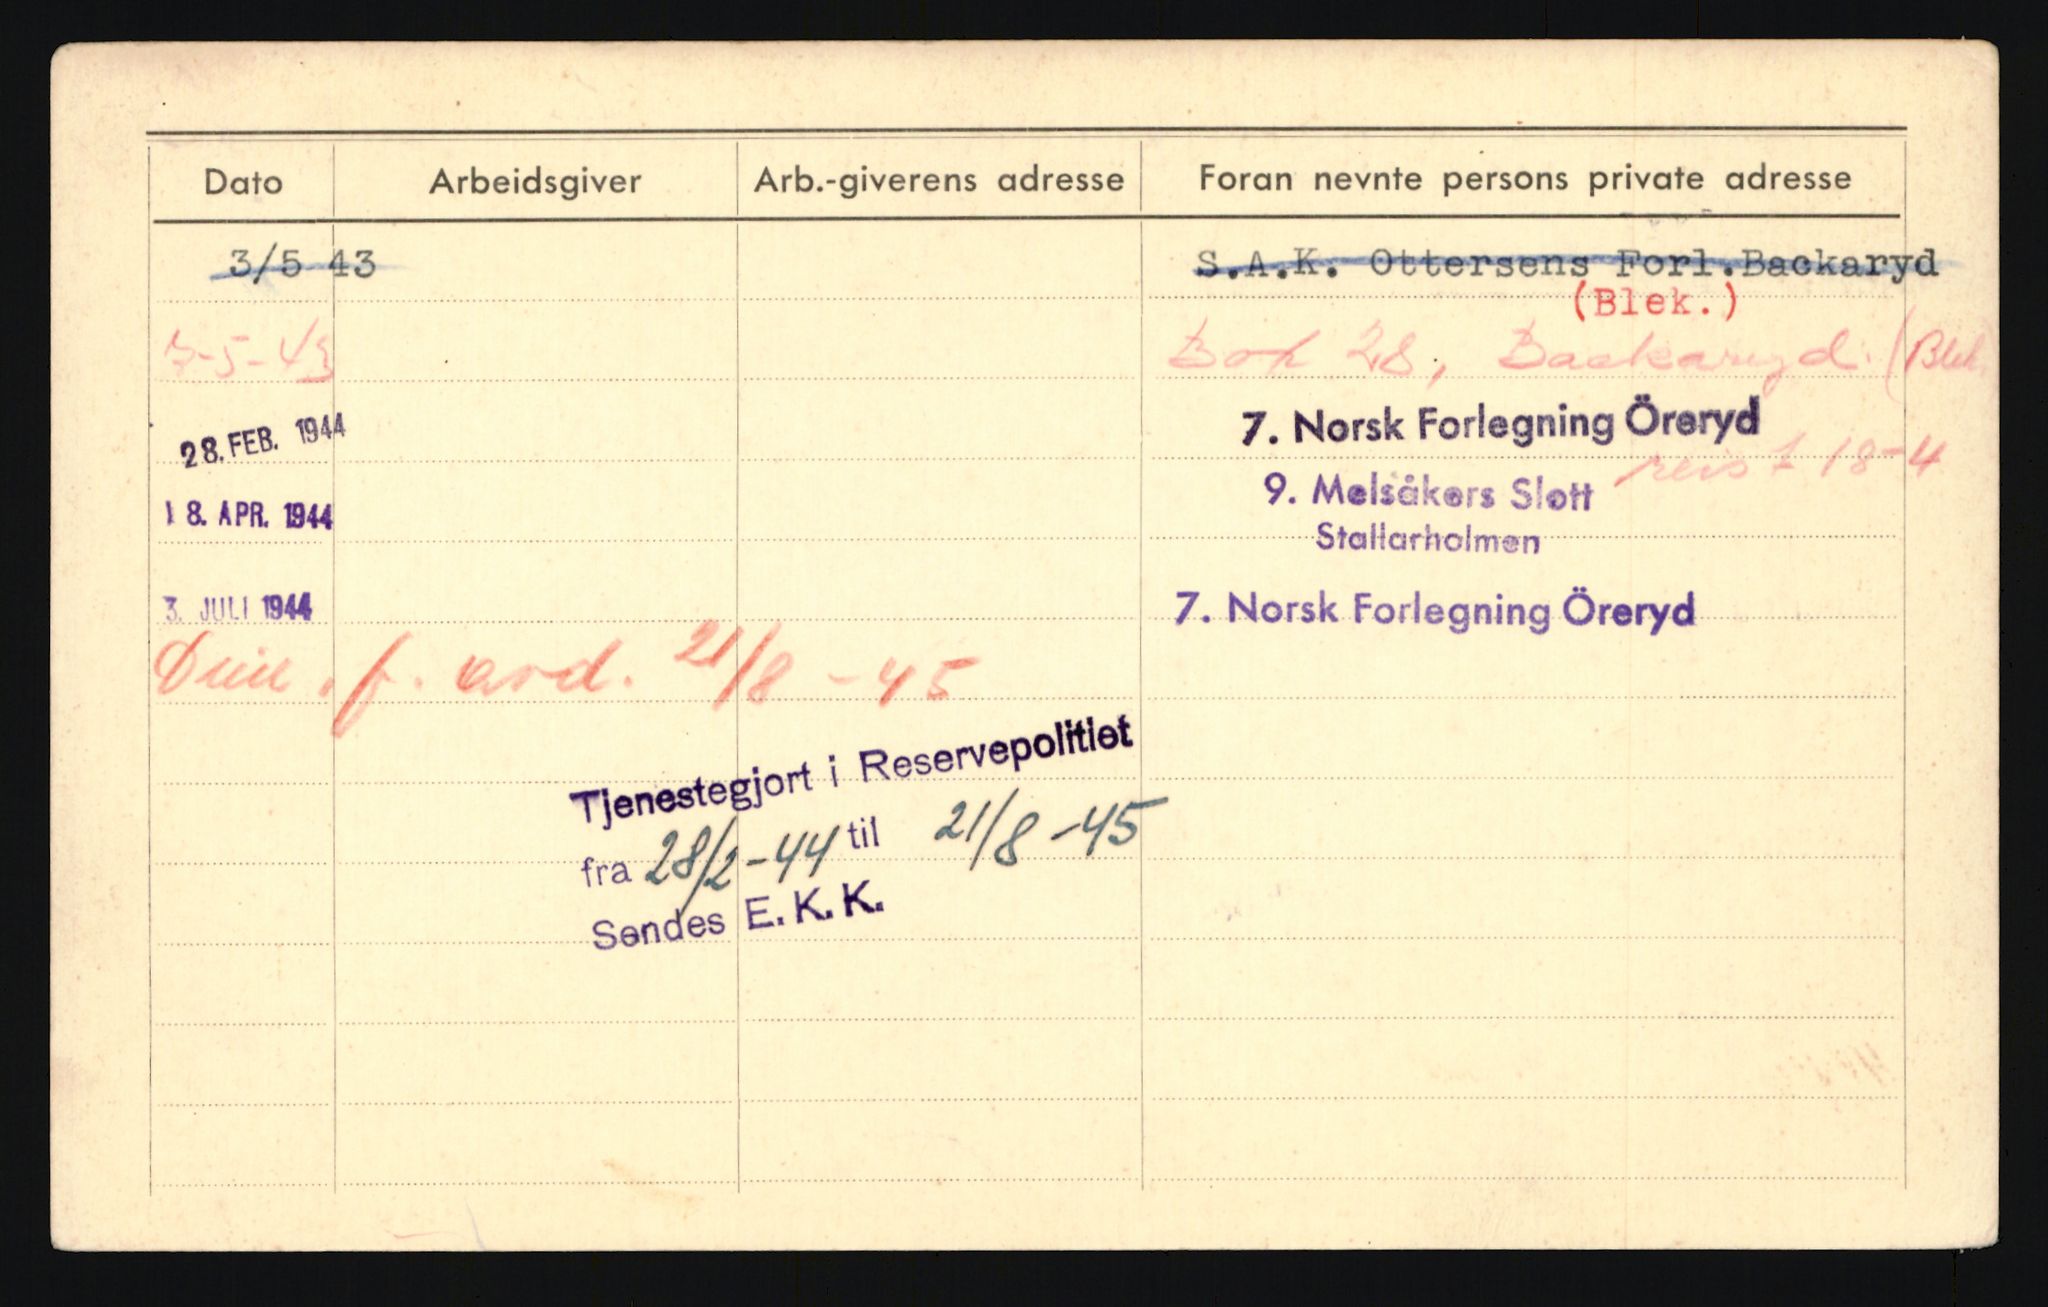 Dato Arbeidsgiver Arb.-giverens adresse Foran nevnte persons private adresse
3/5 43 S.A.K. Ottersens Forl. Backaryd
(Blek.)
3-5-43 Box 28, Backaryd. (Blek.
28. FEB. 1944 7. Norsk Forlegning Öreryd
reist 18-4
18. APR. 1944 9. Melsåkers Slott
Stallarholmen
3. JULI 1944 7. Norsk Forlegning Öreryd
f. avd. 21/8-45
Tjenestegjort i Reservepolitiet
fra 28/2-44 til 21/8-45
Sendes E.K.K.